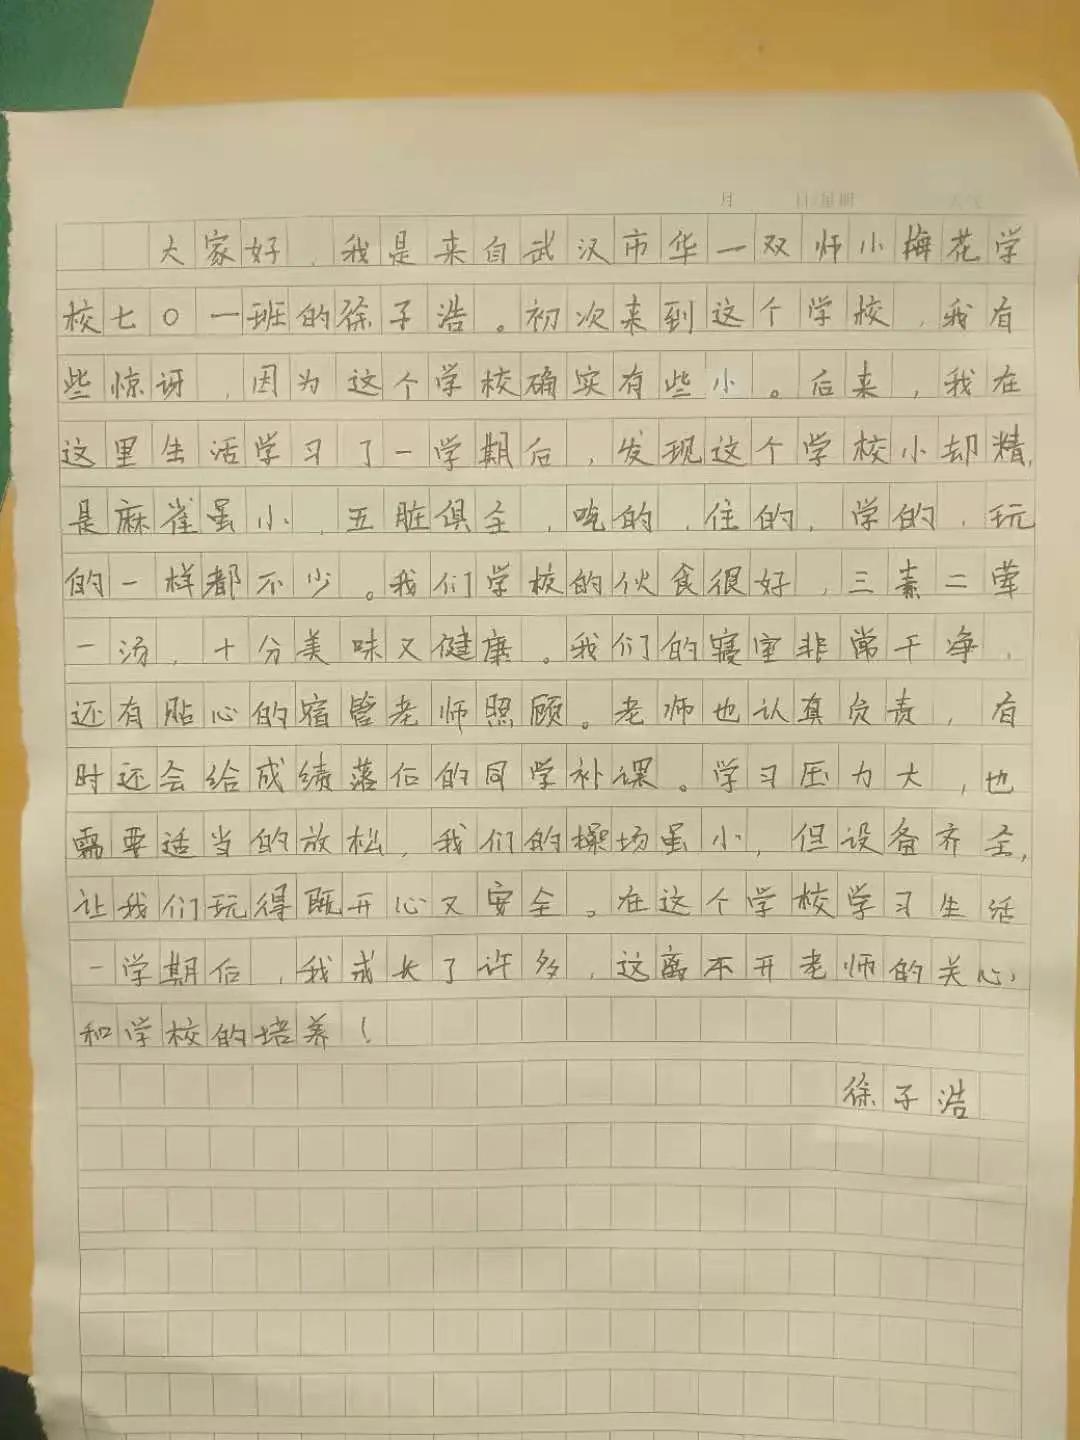 月 日 星期
大家好,我是来自武汉市华一双师小梅花学
校七〇一班的徐子浩。初次来到这个学校,我有
些惊讶,因为这个学校确实有些小。后来,我在
这里生活学习了一学期后,发现这个学校小却精,
是麻雀虽小,五脏俱全,吃的,住的,学的,玩
的一样都不少。我们学校的伙食很好,三素二荤
一汤,十分美味又健康。我们的寝室非常干净,
还有贴心的宿管老师照顾。老师也认真负责,有
时还会给成绩落后的同学补课。学习压力大,也
需要适当的放松,我们的操场虽小,但设备齐全,
让我们玩得既开心又安全。在这个学校学习生活
一学期后,我成长了许多,这离不开老师的关心
和学校的培养!
徐子浩